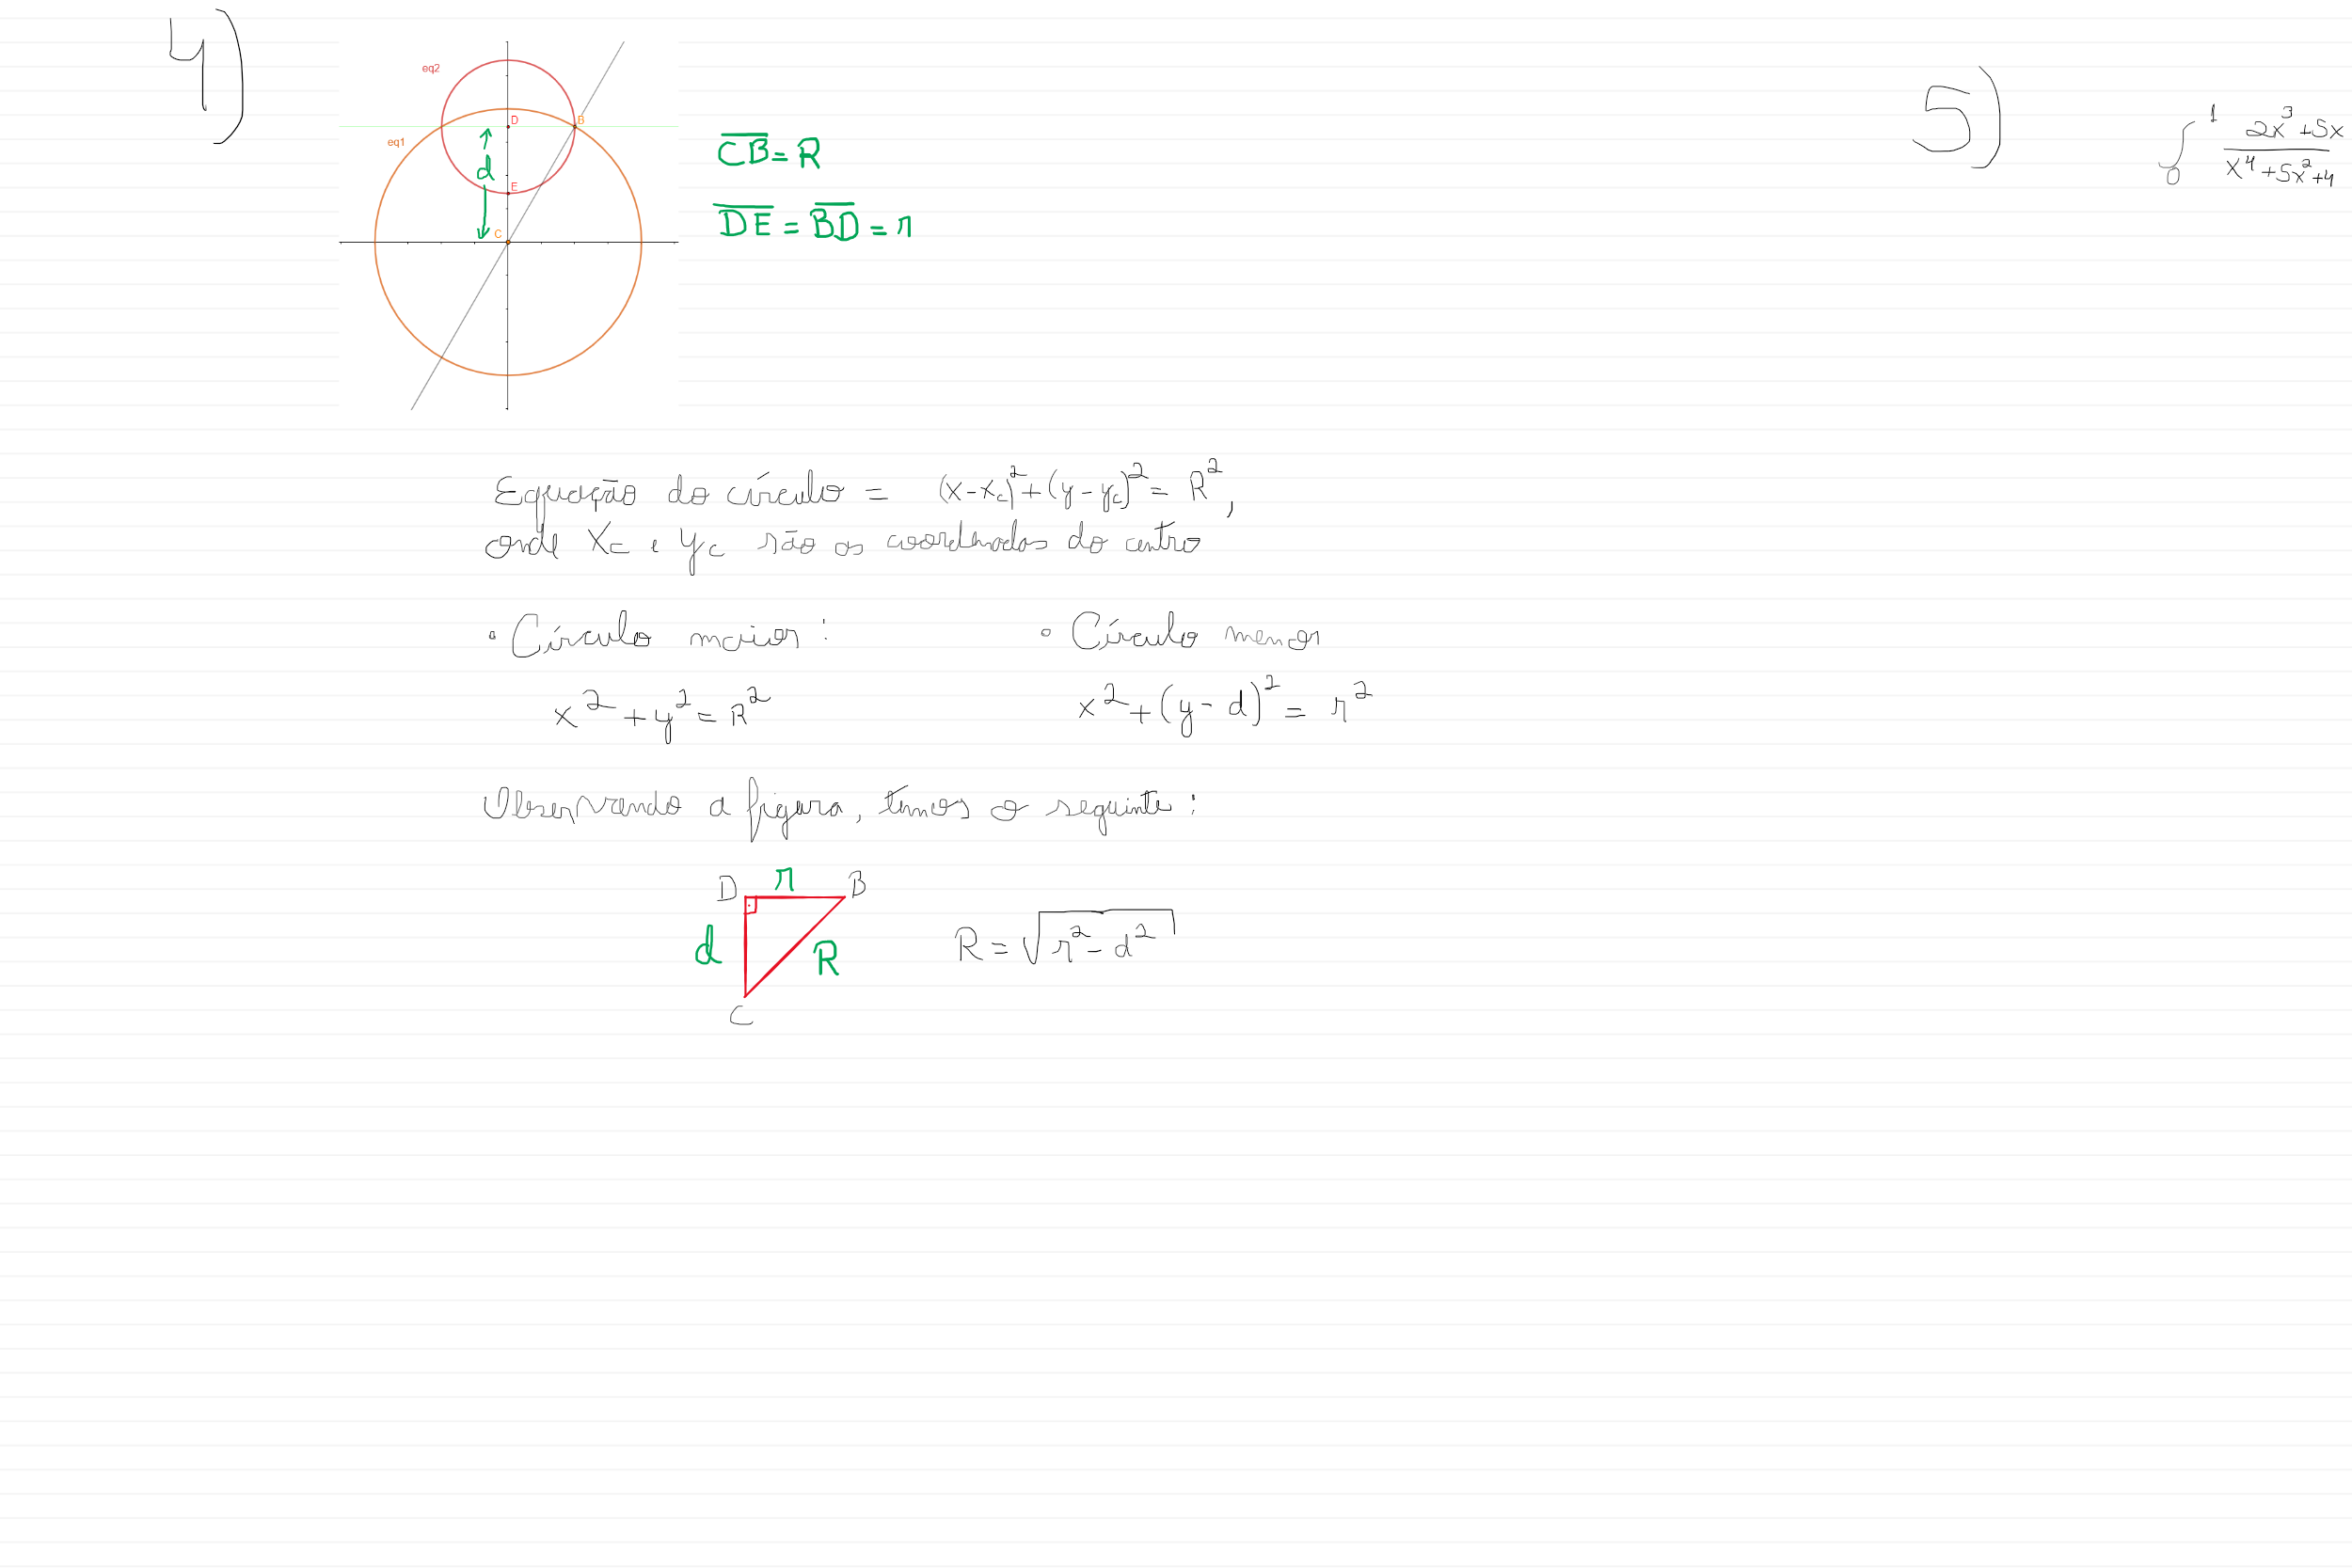 4)
eq2
D
B
eq1
d
E
C
CB = R
DE = BD = r
Equação do círculo = (x-x_c)^2+(y-y_c)^2 = R^2,
onde x_c e y_c são as coordenadas do centro
• Círculo maior:
x^2+y^2 = R^2
• Círculo menor
x^2+(y-d)^2 = r^2
Observando a figura, temos o seguinte:
D r B
d R
C
R = √(r^2 - d^2)
5)
∫_0^1 (2x^3+5x)/(x^4+5x^2+4)